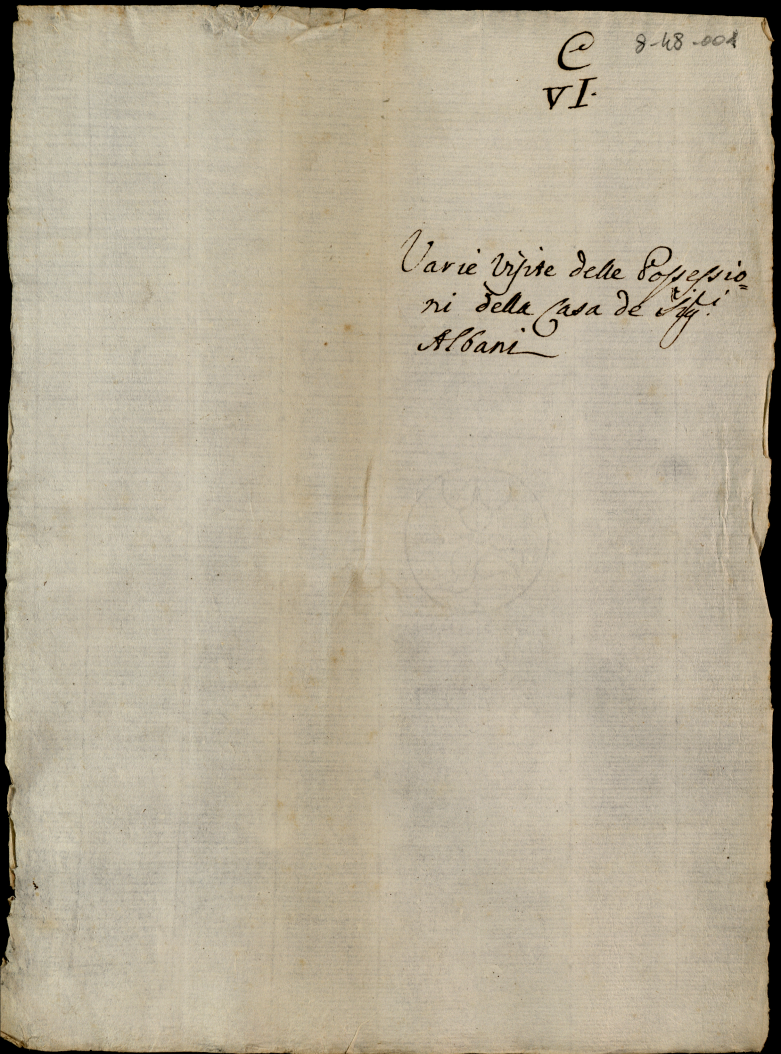 C
8-48-001
VI.
Varie Visite delle Possessio=
ni della Casa de Sig.ri
Albani